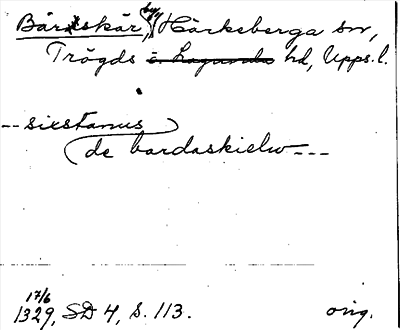 Bärtskär, by, Härkeberga sn,
Trögds o. Lagunda hd, Upps. l.
-- sixstanus
de bardaskielw ---
17/6
1329, SD 4, s. 113. orig.